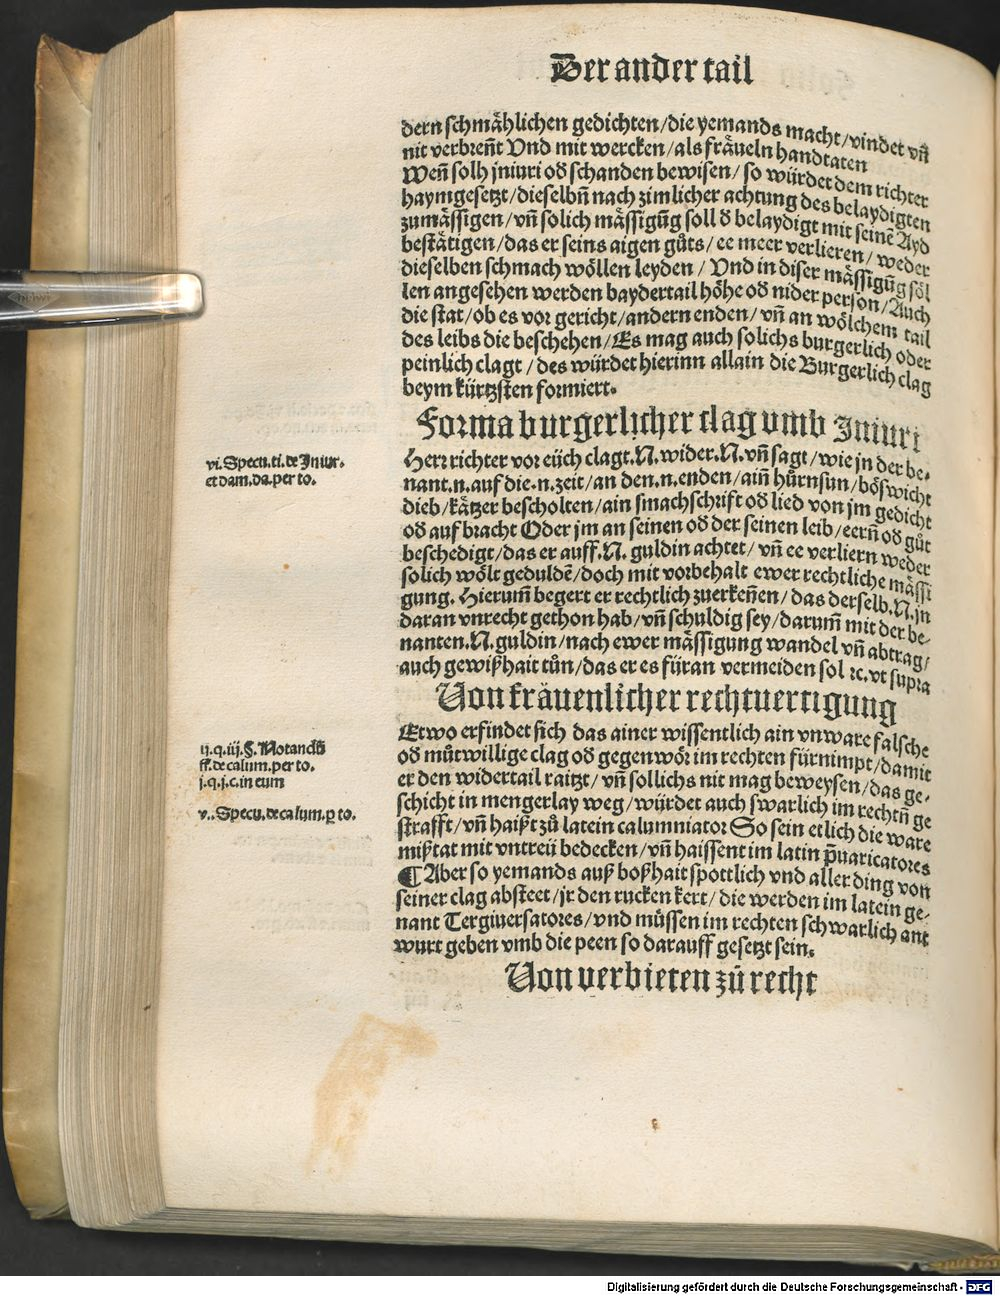 Der ander tail
dern schmählichen gedichten/die yemands macht/vindet vñ
nit verbreñt Vnd mit wercken/als fräueln handtaten
Weñ solh jniuri od schanden bewisen/so würdet dem richter
haymgesetzt/dieselbñ nach zimlicher achtung des belaydigten
zumässigen/vñ solich mässigūg soll d belaydigt mit seinē Ayd
bestätigen/das er seins aigen gůts/ee meer verlieren/weder
dieselben schmach wöllen leyden/Vnd in diser mässigūg söl
len angesehen werden baydertail höhe od nider person/Auch
die stat/ob es vor gericht/andern enden/vñ an wölchem tail
des leibs die beschehen/Es mag auch solichs burgerlich oder
peinlich clagt/des würdet hierinn allain die Burgerlich clag
beym kürtzsten formiert.
Forma burgerlicher clag vmb Iniuri
vi. Specu. ti. de Iniur.
et dam. da. per to.
Herr richter vor eüch clagt. N. wider. N. vñ sagt/wie jn der be-
nant. n. auf die. n. zeit/an den. n. enden/ain hůrnsun/böswicht
dieb/kätzer bescholten/ain smachschrift od lied von jm gedicht
od auf bracht Oder jm an seinen od der seinen leib/eerñ od gůt
beschedigt/das er auff. N. guldin achtet/vñ ee verliern weder
solich wölt geduldē/doch mit vorbehalt ewer rechtliche mässi
gung. Hierum̃ begert er rechtlich zuerkeñen/das derselb. N. jn
daran vnrecht gethon hab/vñ schuldig sey/darum̃ mit der be-
nanten. N. guldin/nach ewer mässigung wandel vñ abtrag/
auch gewißhait tůn/das er es füran vermeiden sol ꝛc. vt supra
Von fräuenlicher rechtuertigung
ij. q. iij. §. Notandū
ff. de calum. per to.
j. q. j. c. in eum
v.. Specu. de calum. ꝑ to.
Etwo erfindet sich das ainer wissentlich ain vnware falsche
od můtwillige clag od gegenwör im rechten fürnimpt/damit
er den widertail raitzt/vñ sollichs nit mag beweysen/das ge-
schicht in mengerlay weg/würdet auch swarlich im rechtñ ge
strafft/vñ haißt zů latein calumniator So sein etlich die ware
mißtat mit vntreü bedecken/vñ haissent im latin p̄uaricatores
¶ Aber so yemands auß boßhait spottlich vnd aller ding von
seiner clag absteet/jr den rucken kert/die werden im latein ge-
nant Tergiuersatores/vnd müssen im rechten schwarlich ant
wurt geben vmb die peen so darauff gesetzt sein.
Von verbieten zů recht
Digitalisierung gefördert durch die Deutsche Forschungsgemeinschaft - DFG